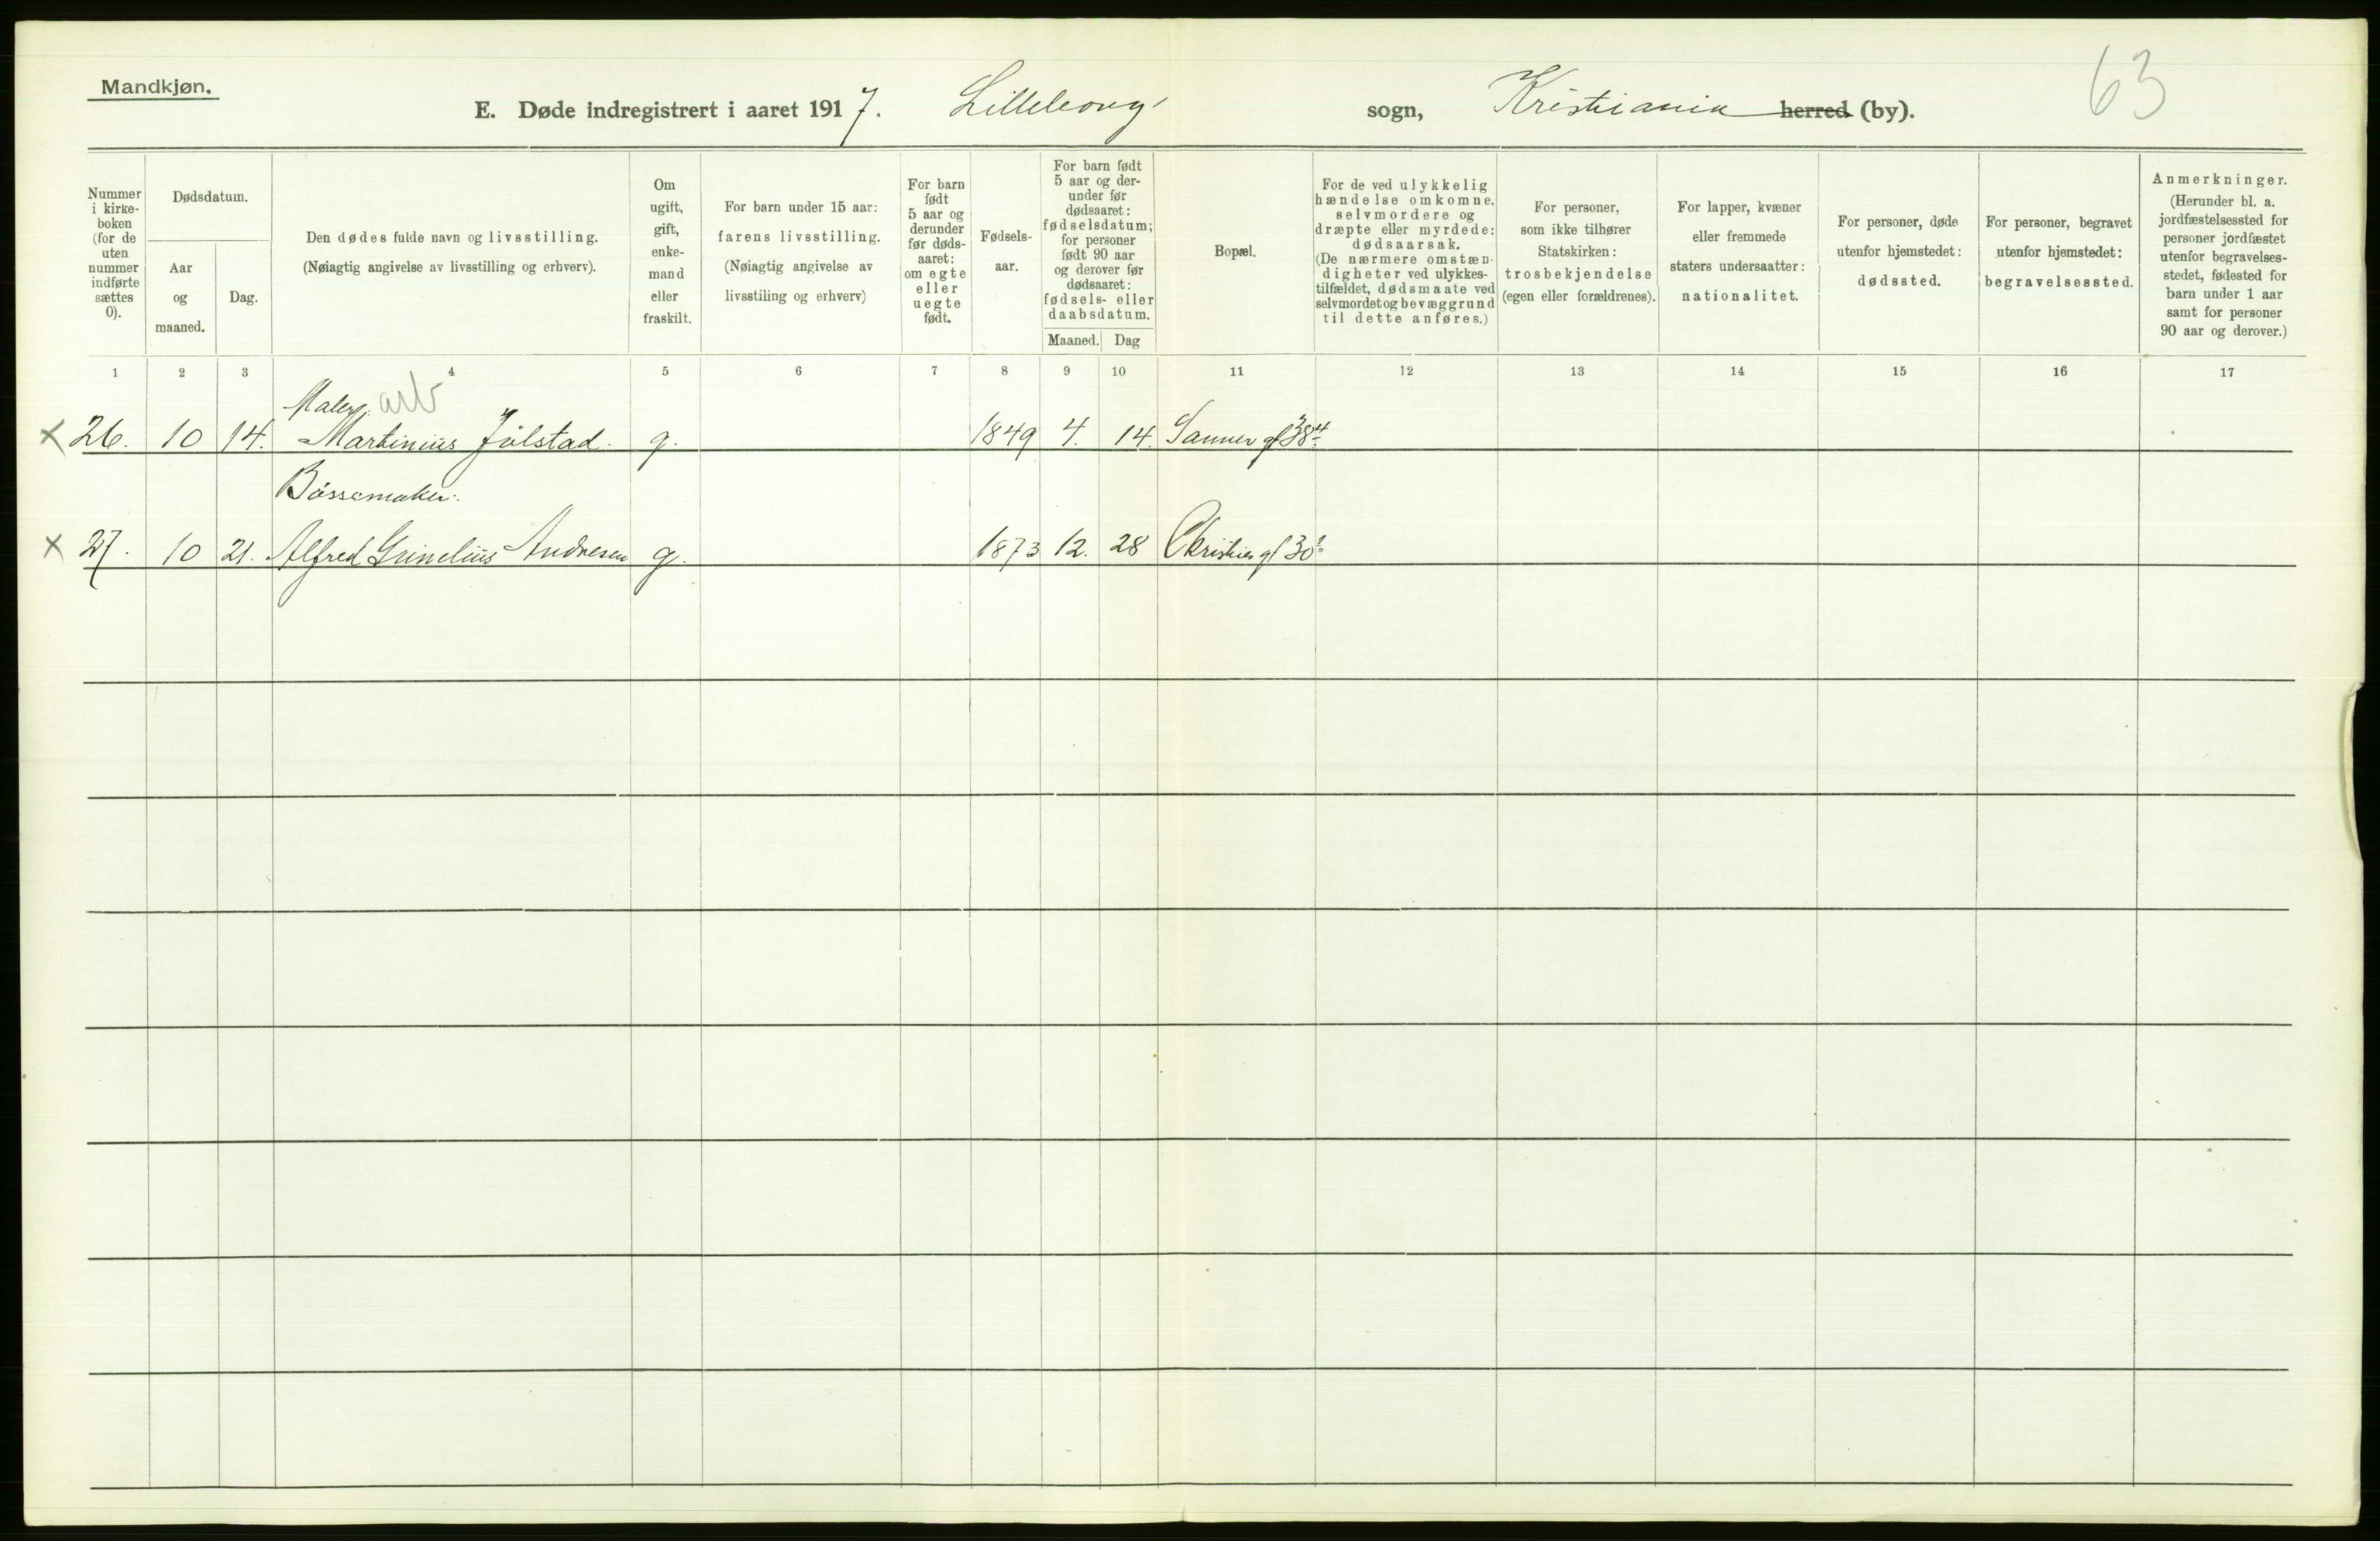 Mandkjøn.
63
E. Døde indregistrert i aaret 1917. Lilleborg sogn, Kristiania herred (by).
Nummer i kirke- boken (for de uten nummer indførte sættes 0).
Dødsdatum.
Aar og maaned.
Dag.
Den dødes fulde navn og livsstilling.
(Nøiagtig angivelse av livsstilling og erhverv).
Om ugift, gift, enke- mand eller fraskilt.
For barn under 15 aar:
farens livsstilling.
(Nøiagtig angivelse av
livsstiling og erhverv)
For barn født 5 aar og derunder før døds- aaret: om egte eller uegte født.
Fødsels- aar.
For barn født 5 aar og der- under før dødsaaret: fødselsdatum; for personer født 90 aar og derover før dødsaaret: fødsels- eller daabsdatum.
Maaned. Dag
Bopæl.
For de ved ulykkelig hændelse omkomne, selvmordere og dræpte eller myrdede: dødsaarsak.
(De nærmere omstæn- digheter ved ulykkes- tilfældet, dødsmaate ved selvmordet og bevæggrund til dette anføres.)
For personer, som ikke tilhører Statskirken: trosbekjendelse (egen eller forældrenes).
For lapper, kvæner eller fremmede staters undersaatter: nationalitet.
For personer, døde utenfor hjemstedet: dødssted.
For personer, begravet utenfor hjemstedet: begravelsessted.
Anmerkninger.
(Herunder bl. a. jordfæstelsessted for personer jordfæstet utenfor begravelses- stedet, fødested for barn under 1 aar samt for personer 90 aar og derover.)
1 2 3 4 5 6 7 8 9 10 11 12 13 14 15 16 17
Maler. arb
× 26. 10 14. Martinius Julstad. g. 1849 4. 14. Sanner gt 38 4
Bössemaker.
× 27. 10 21. Alfred Andresen g. 1873 12. 28 Christies gt 30